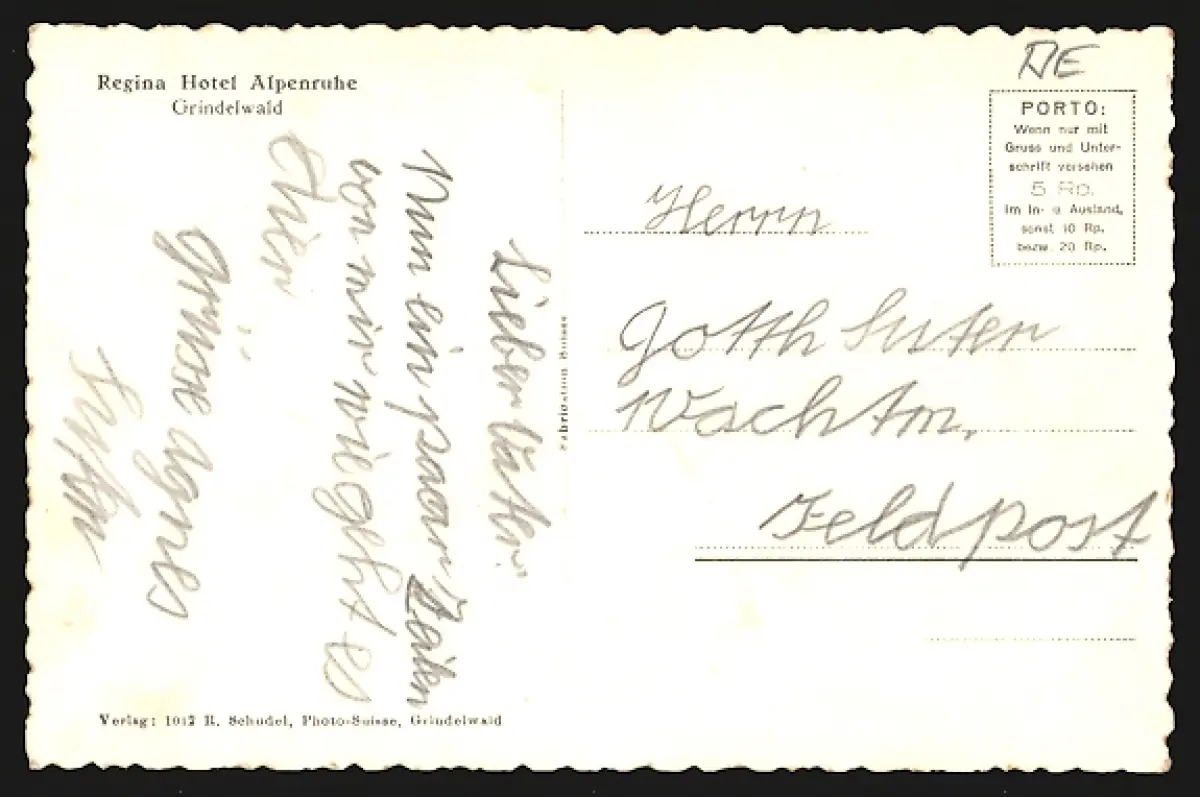 Regina Hotel Alpenruhe
Grindelwald
Lieber Vater.
Nun ein paar Zeilen
von mir wie geht es
Grüsse Agnes
Suter
Fabrication Suisse
Verlag: 1012 R. Schudel, Photo-Suisse, Grindelwald
DE
PORTO:
Wenn nur mit
Gruss und Unter-
schrift versehen
5 Rp.
im In- u Ausland,
sonst 10 Rp.
bezw. 20 Rp.
Herrn
Gotth Suter
Wachtm.
Feldpost